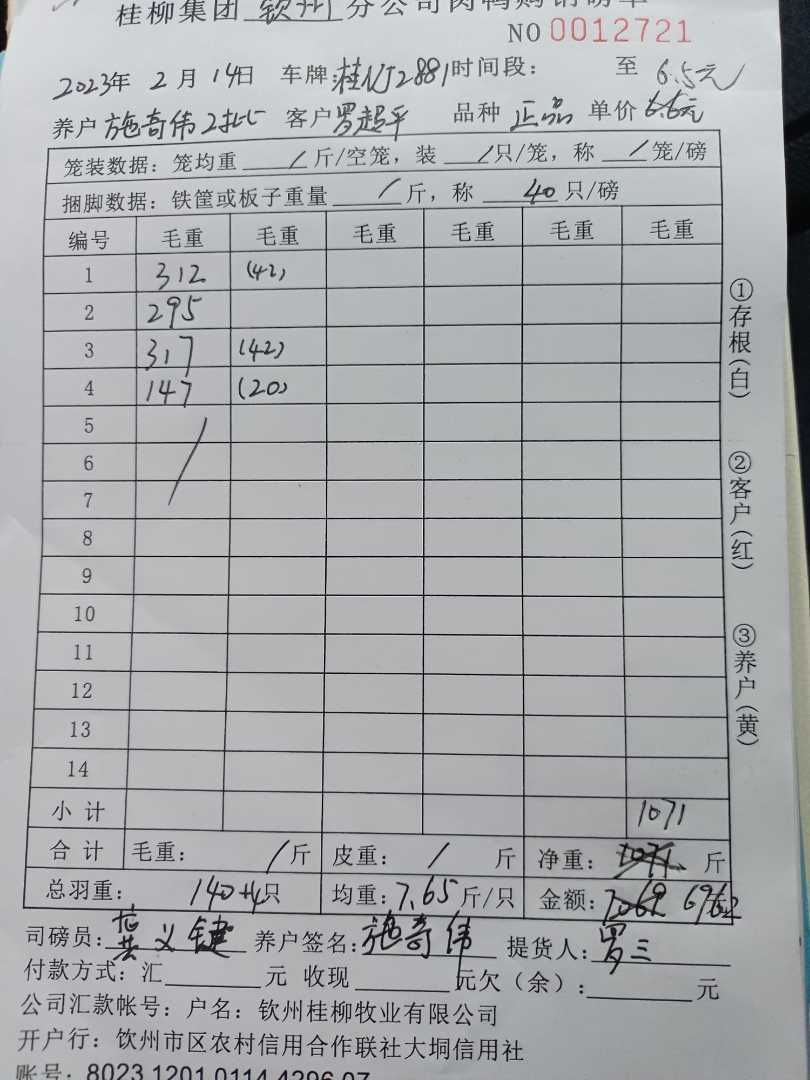 桂柳集团 钦州 分公司肉鸭购销磅单
NO 0012721
2023年 2月 14日 车牌:桂N2881 时间段: 至 6.5元
养户 施奇伟 客户 罗超平 品种 正品 单价 6.6元
笼装数据: 笼均重 / 斤/空笼, 装 / 只/笼, 称 / 笼/磅
捆脚数据: 铁筐或板子重量 / 斤, 称 40 只/磅
编号 毛重 毛重 毛重 毛重 毛重 毛重
1 312 (42)
2 295
3 317 (42)
4 147 (20)
5
6
7
8
9
10
11
12
13
14
小计 1071
合计 毛重: / 斤 皮重: / 斤 净重: 1071 斤
总羽重: 140+4只 均重: 7.65 斤/只 金额: 7069 6962
司磅员: 义键 养户签名: 施奇伟 提货人: 罗三
付款方式: 汇 元 收现 元欠(余): 元
公司汇款帐号: 户名: 钦州桂柳牧业有限公司
开户行: 饮州市区农村信用合作联社大垌信用社
账号: 8023 1201 0114 4296 07
①存根(白)
②客户(红)
③养户(黄)